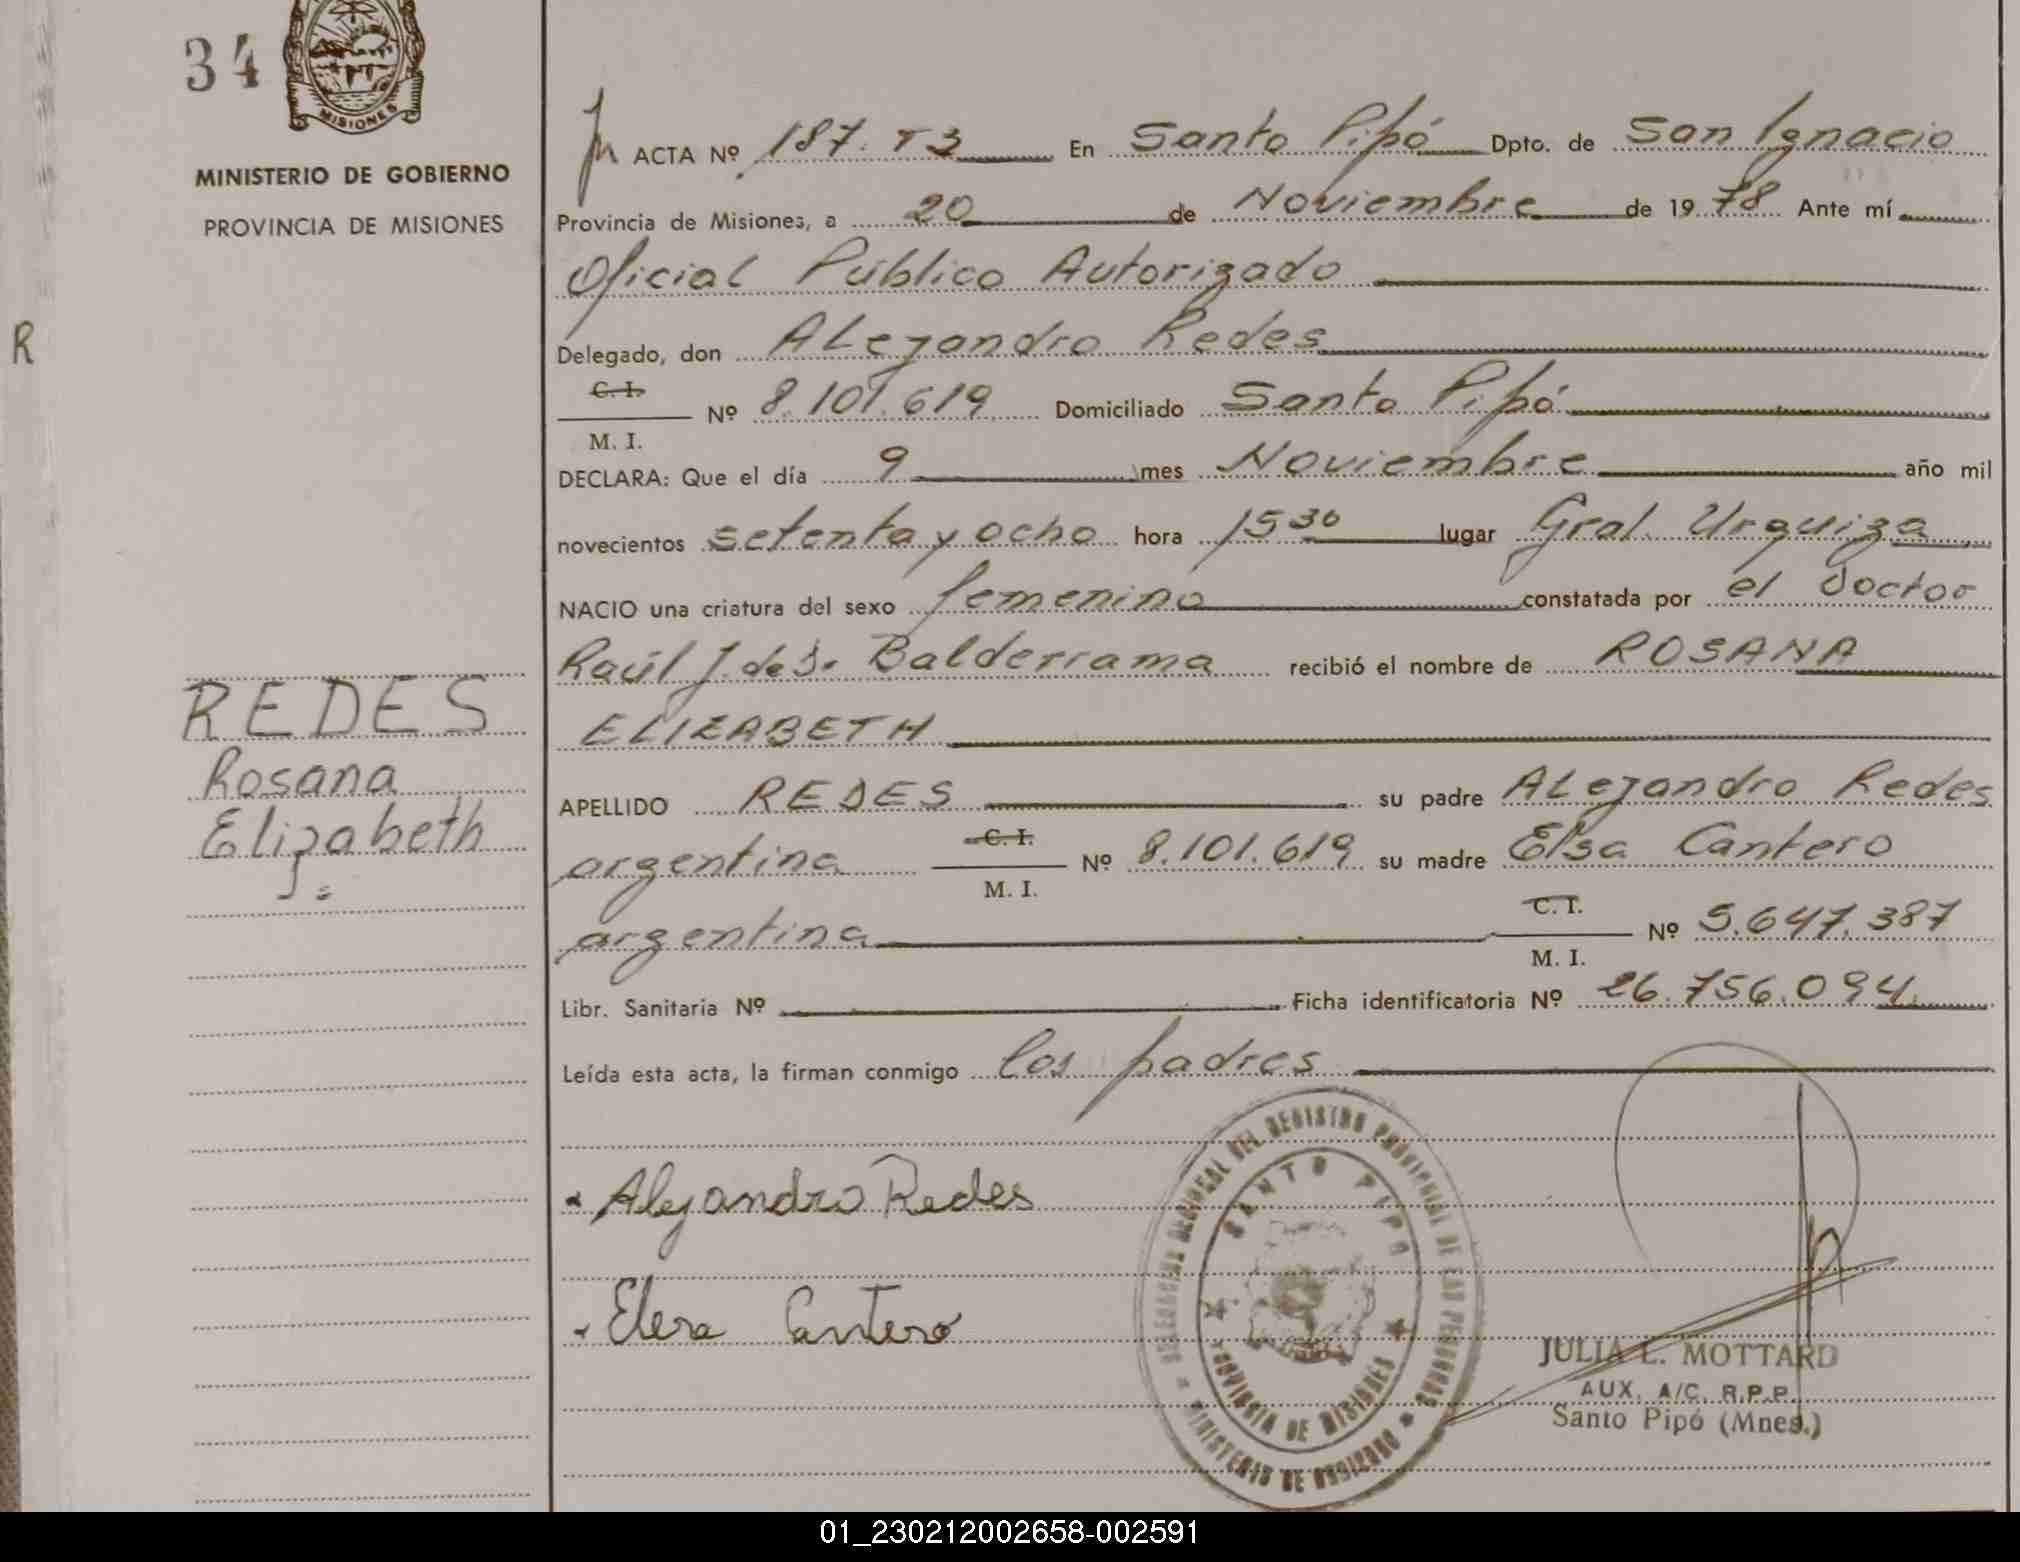 34
MISIONES
MINISTERIO DE GOBIERNO
PROVINCIA DE MISIONES
R
REDES
Rosana
Elizabeth
ACTA Nº 187. T3 En Santo Pipó Dpto. de San Ignacio
Provincia de Misiones, a 20 de Noviembre de 1978 Ante mí
Oficial Público Autorizado
Delegado, don Alejandro Redes
C. I.
Nº 8.101.619 Domiciliado Santo Pipó
M. I.
DECLARA: Que el día 9 mes Noviembre año mil
novecientos setenta y ocho hora 15 30 lugar Gral. Urquiza
NACIO una criatura del sexo femenino constatada por el doctor
Raúl J. de J. Balderrama recibió el nombre de ROSANA
ELIZABETH
APELLIDO REDES su padre Alejandro Redes
argentina C. I. Nº 8.101.619 su madre Elsa Cantero
M. I.
argentina C. I. Nº 5.647.387
M. I.
Libr. Sanitaria Nº Ficha identificatoria Nº 26.756.094
Leída esta acta, la firman conmigo los padres
Alejandro Redes
Elsa Cantero
DEL REGISTRO PROVINCIAL DE LAS PERSONAS
SANTO PIPO
PROVINCIA DE MISIONES
MINISTERIO DE GOBIERNO
JULIA L. MOTTARD
AUX. A/C. R.P.P.
Santo Pipó (Mnes.)
01_230212002658-002591